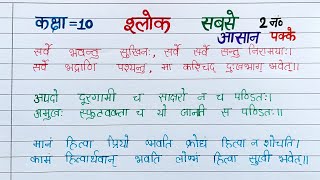 कक्षा=10 श्लोक सबसे 2 नं०
आसान पक्के
सर्वे भवन्तु सुखिनः, सर्वे सर्वे सन्तु निरामयाः।
सर्वे भद्राणि पश्यन्तु, मा कश्चिद् दुःखभाग् भवेत्।।
अपदो दूरगामी च साक्षरो न च पण्डितः।
अमुखः स्फुटवक्ता च यो जानाति स पण्डितः।।
मानं हित्वा प्रियो भवति क्रोधं हित्वा न शोचति।
कामं हित्वार्थवान् भवति लोभं हित्वा सुखी भवेत्।।